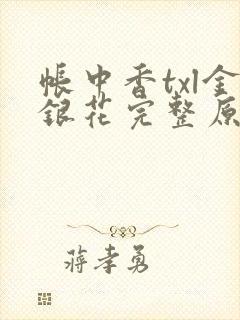 帐中香txl金
银花完整原
蒋孝勇